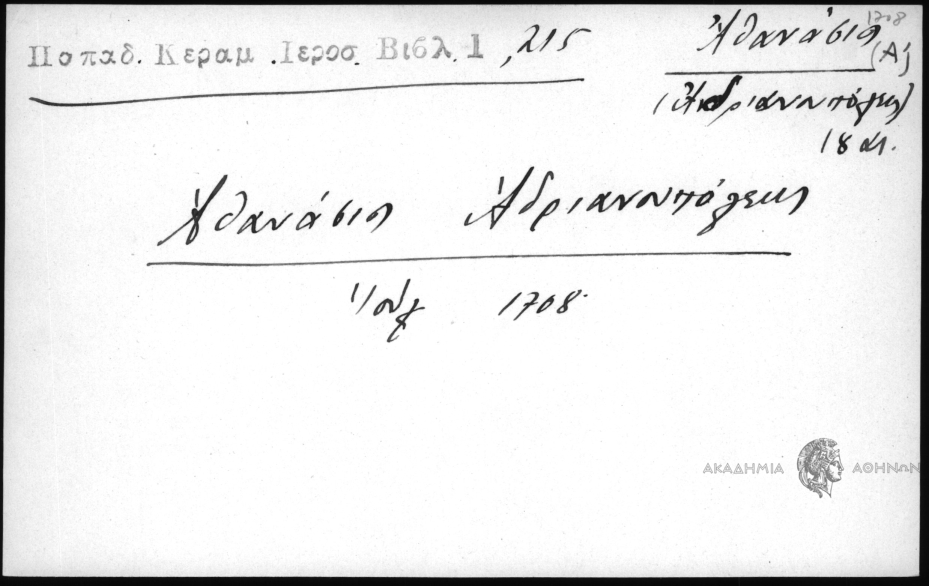 1708
Παπαδ. Κεραμ. Ιεροσ. Βιβλ. 1, 215
Ἀθανάσιος
(Α')
(Ἀδριανουπόλεως)
18 αι.
Ἀθανάσιος Ἀδριανουπόλεως
Ἰούλ 1708
ΑΚΑΔΗΜΙΑ ΑΘΗΝΩΝ